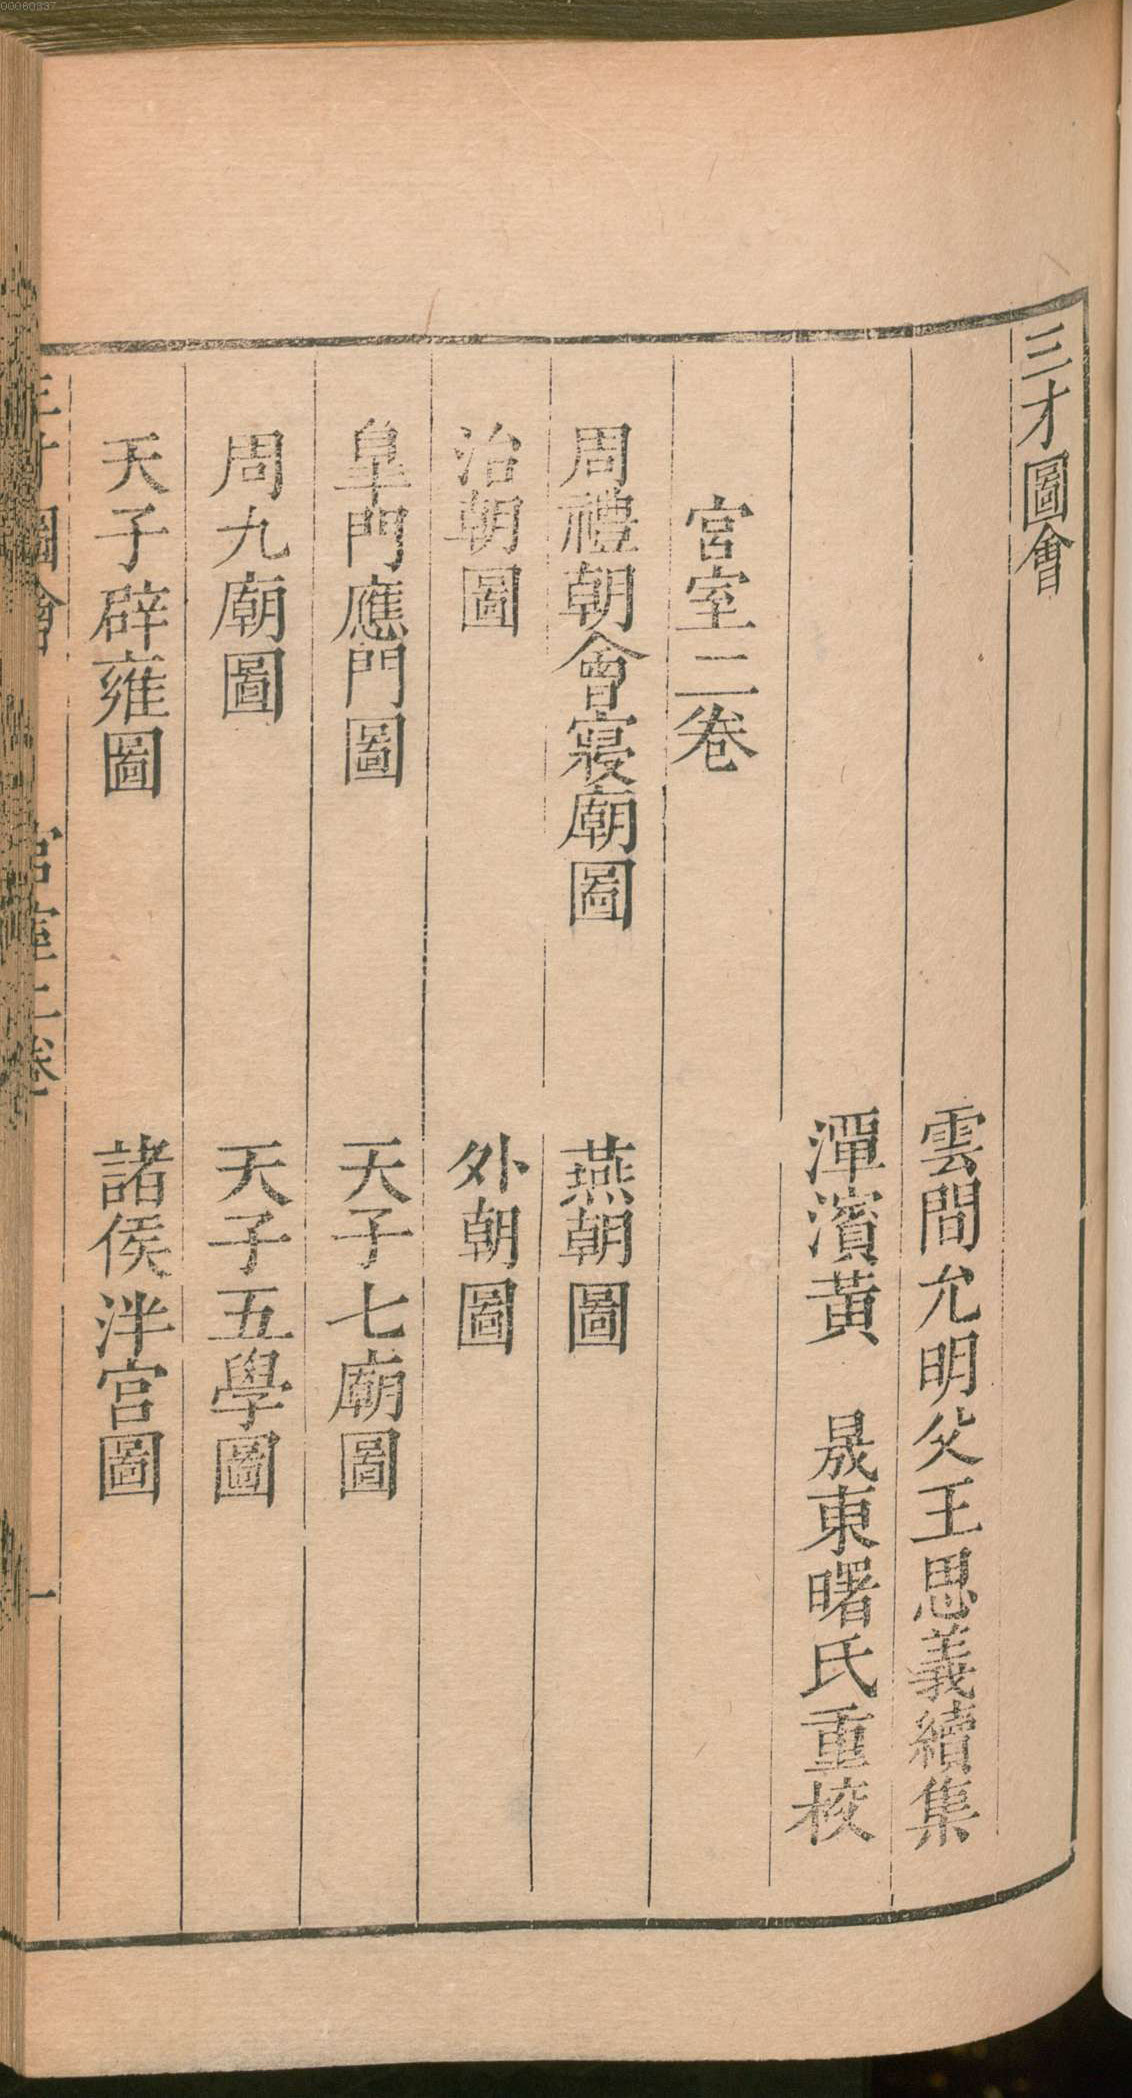 三才圖會
雲間允明父王思義續集
潭濱黃　晟東曙氏重校
宮室二卷
周禮朝會寢廟圖　燕朝圖
治朝圖　外朝圖
皐門應門圖　天子七廟圖
周九廟圖　天子五學圖
天子辟雍圖　諸侯泮宮圖
三才圖會　宮室二卷　一
00060337